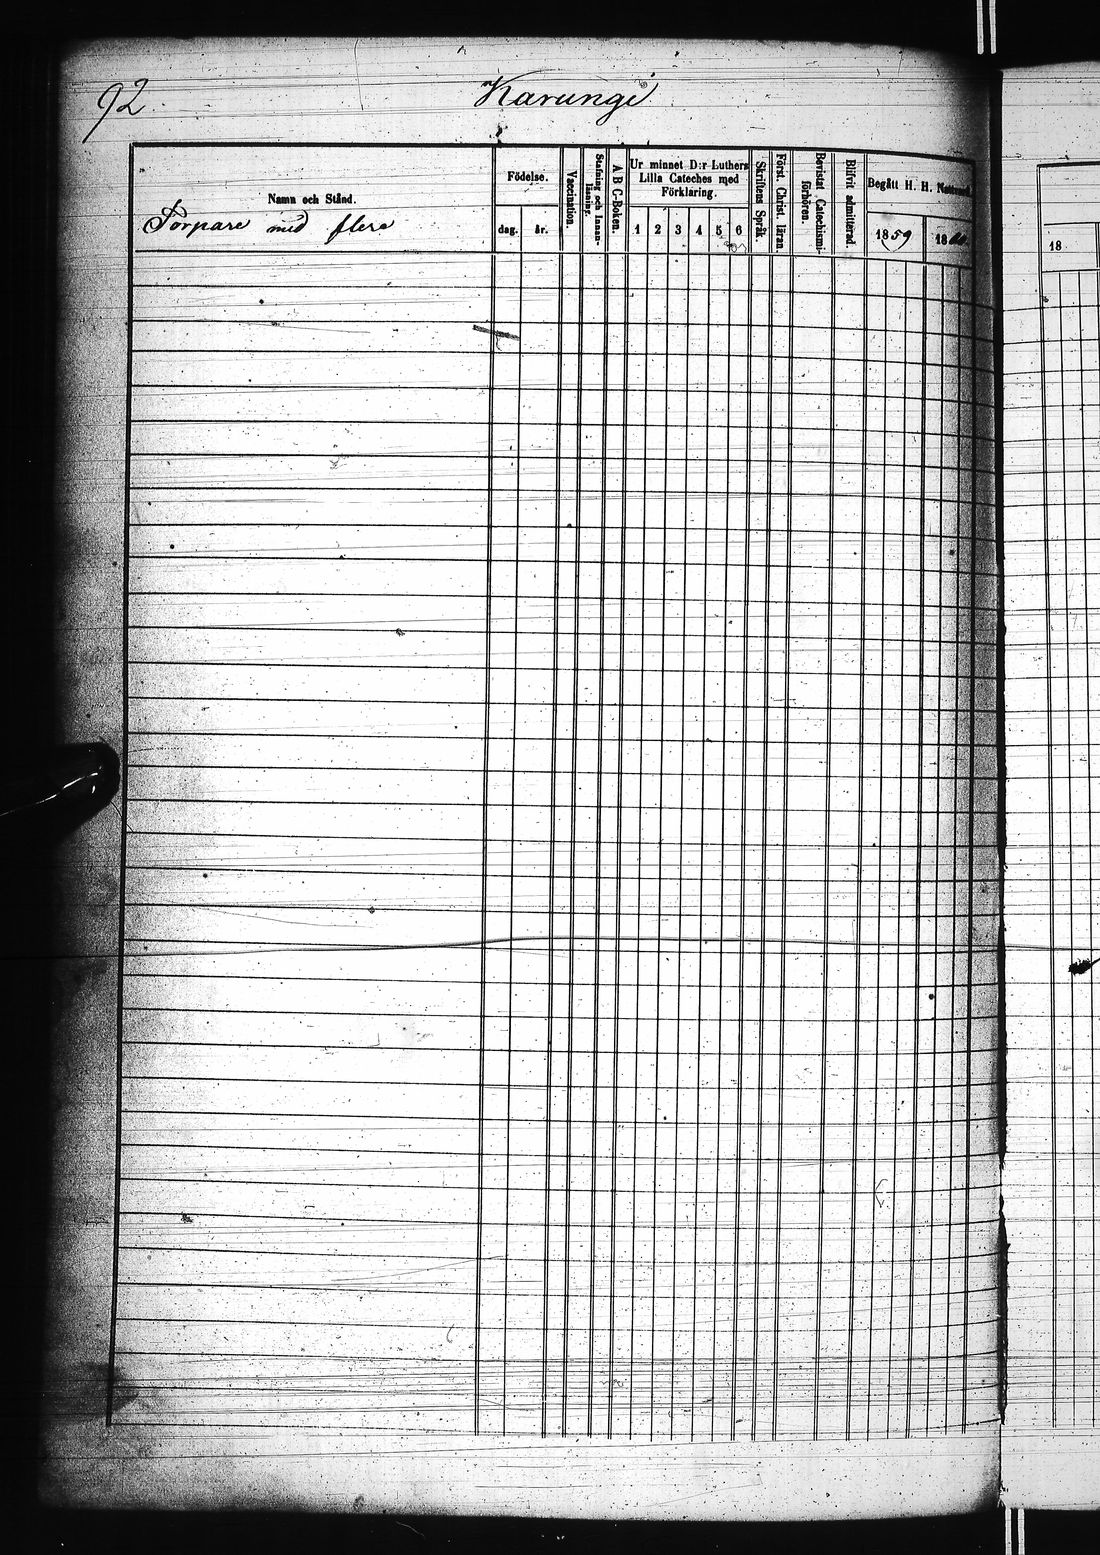 92
Karungi
Namn och Stånd.
Torpare med flere
Födelse.
dag. år.
Vaccination.
Stafning och Innan-
läsning.
A B C-Boken.
Ur minnet D:r Luthers
Lilla Cateches med
Förklaring.
1 2 3 4 5 6
Skriftens Språk.
Först. Christ. läran
Bevistat Catechismi-
förhören.
Blifvit admitterad
Begått H. H. Nattvard.
1859 1860
18